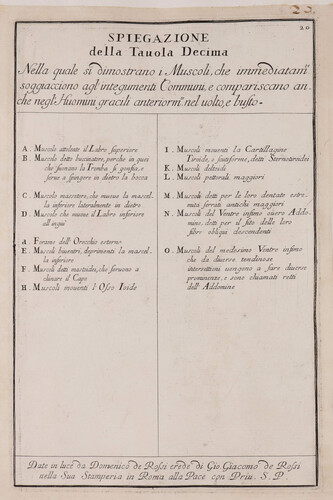 23
20
SPIEGAZIONE
della Tauola Decima
Nella quale si dimostrano i Muscoli, che immediatam.
soggiacciono agl'integumenti Communi, e compariscano an=
che negl'Huomini gracili anteriorm. nel uolto, e busto.
A. Muscoli attolenti il Labro superiore
B. Muscoli detti buccinatore, perche in quei
che suonano la Tromba si gonfia, e
serue a spingere in dietro la bocca
C. Muscolo massetere, che muoue la mascel.
la inferiore lateralmente in dietro
D. Muscolo che muoue il Labro inferiore
all'ingiù
d. Forame dell' Orecchio esterno
E. Muscoli biuentri, deprimenti la mascel.
la inferiore
F. Muscoli detti mastoidei, che seruono a
chinare il Capo
H. Muscoli mouenti l'Osso Ioide
I. Muscoli mouenti la Cartillagine
Tiroide, o scutiforme, detti Sternotiroidei
K. Muscoli deltoidi
L. Muscoli pettorali maggiori
M. Muscoli detti per le loro dentate estre.
mità serrati antichi maggiori
N. Muscoli del Ventre infimo ouero Addo.
mine, detti per il sito delle loro
fibre obliqui descendenti
O. Muscoli del medesimo Ventre infimo
che da diuerse tendinose
intersettioni uengono a fare diuerse
prominenze, e sono chiamati retti
dell' Addomine
Date in luce da Domenico de Rossi erede di Gio. Giacomo de Rossi
nella Sua Stamperia in Roma alla Pace con Priu. S. P.